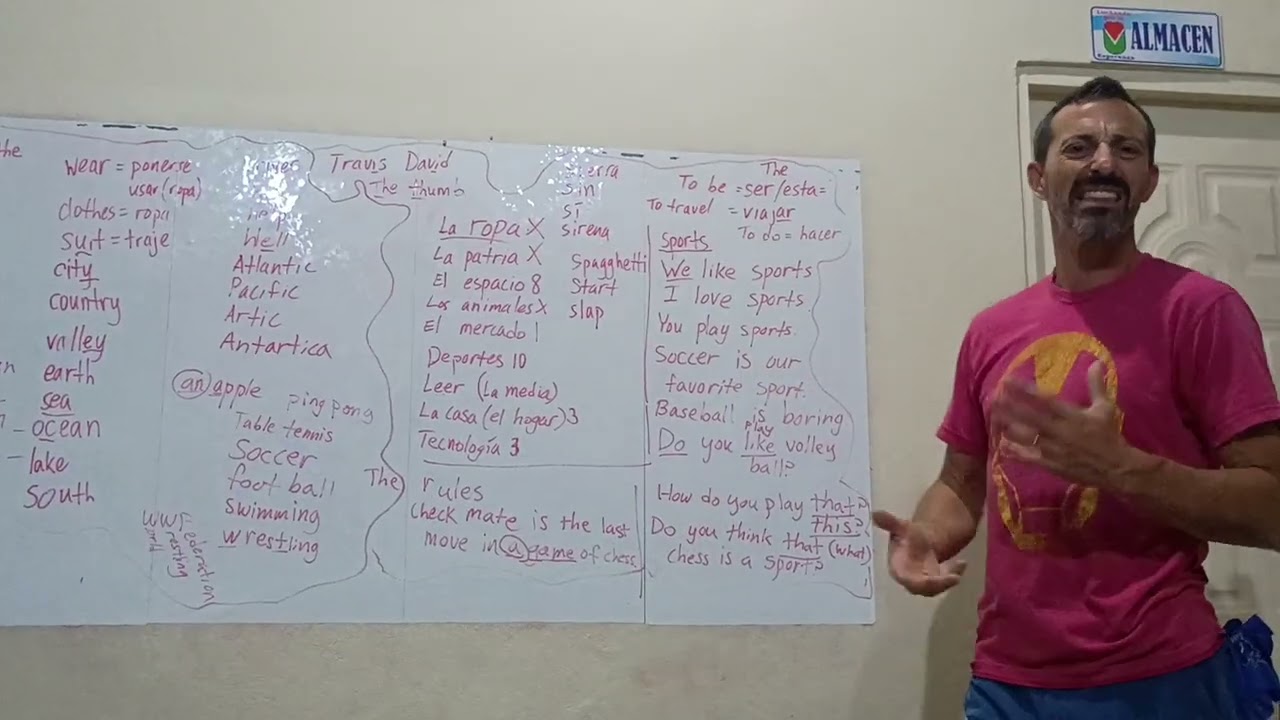 the
wear = ponerse
usar (ropa)
clothes = ropa
suit = traje
city
country
valley
earth
sea
- ocean
- lake
south
help
Well
Atlantic
Pacific
Artic
Antartica
an apple
ping pong
Table tennis
Soccer
foot ball
swimming
wrestling
WWF ederation
World
restling
Travis David
The thumb
La ropa X
La patria X
El espacio 8
Los animales X
El mercado 1
Deportes 10
Leer (La media)
La casa (el hogar) 3
Tecnología 3
The
rules
Check mate is the last
move in a game of chess
sierra
sin
sí
sirena
Spagghetti
Start
slap
The
To be = ser/esta=
To travel = viajar
To do = hacer
Sports
We like sports
I love sports.
You play sports.
Soccer is our
favorite sport.
Baseball is boring
play
Do you like volley
ball?
How do you play that?
this?
Do you think that (what)
chess is a sport?
Luchando
por la
ALMACEN
Esperanza